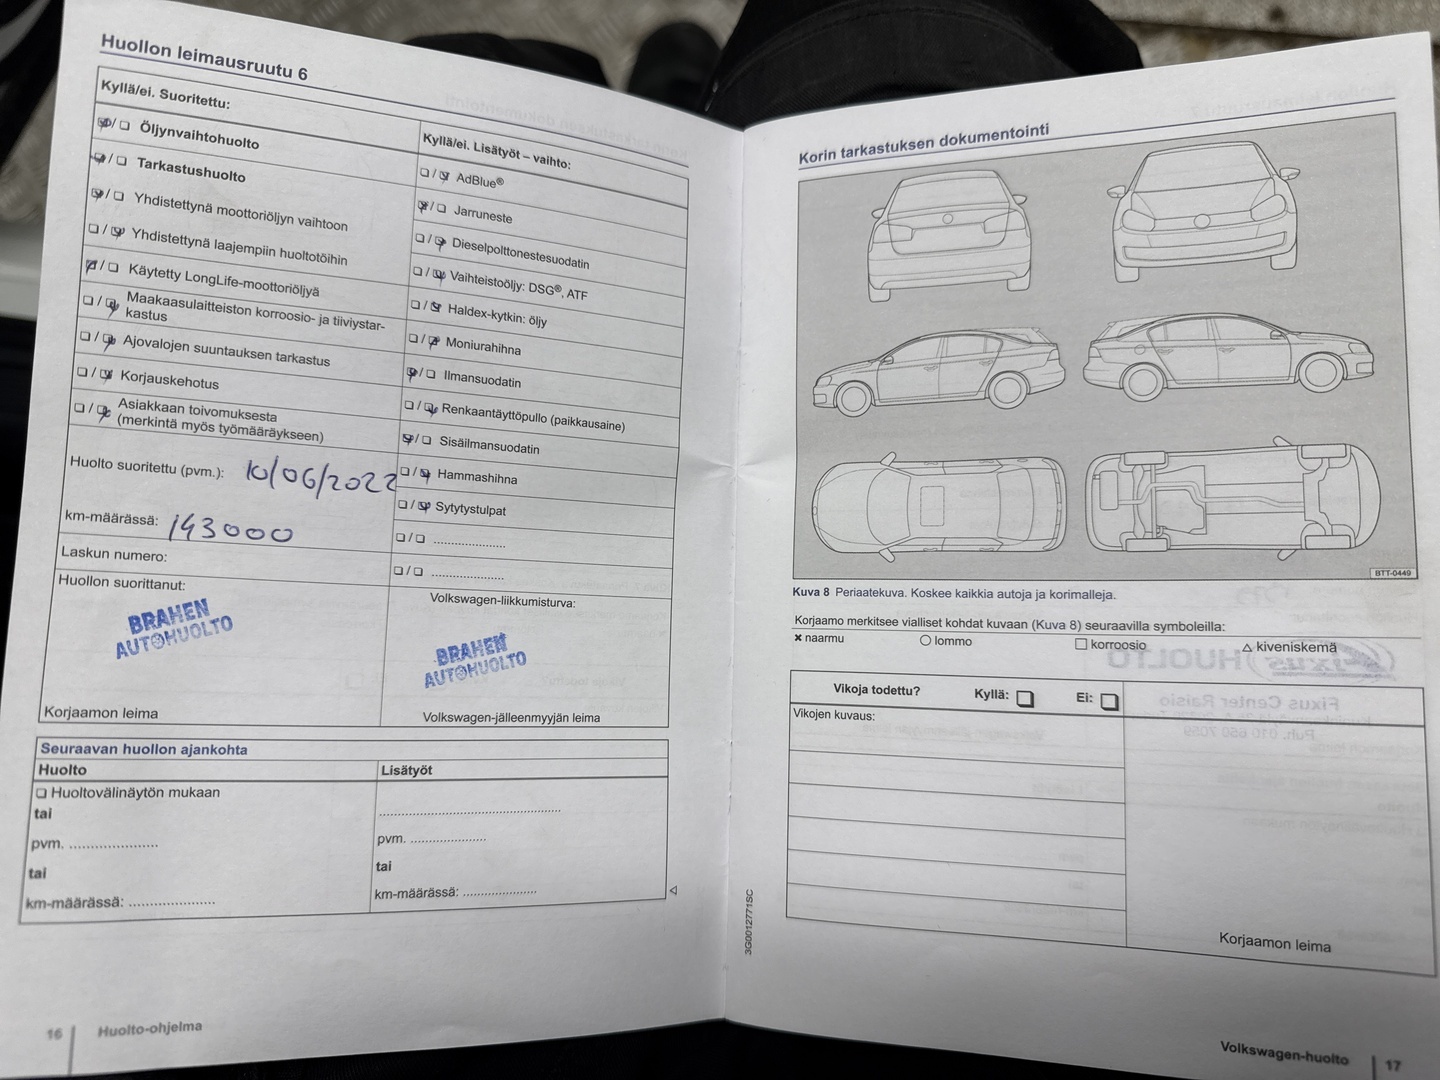 Huollon leimausruutu 6
Kyllä/ei. Suoritettu:
Öljynvaihtohuolto
Tarkastushuolto
Yhdistettynä moottoriöljyn vaihtoon
Yhdistettynä laajempiin huoltotöihin
Käytetty LongLife-moottoriöljyä
Maakaasulaitteiston korroosio- ja tiiviystar-
kastus
Ajovalojen suuntauksen tarkastus
Korjauskehotus
Asiakkaan toivomuksesta
(merkintä myös työmääräykseen)
Huolto suoritettu (pvm.): 10/06/2022
km-määrässä: 143000
Laskun numero:
Huollon suorittanut:
BRAHEN
AUTOHUOLTO
Korjaamon leima
Kyllä/ei. Lisätyöt – vaihto:
AdBlue®
Jarruneste
Dieselpolttonestesuodatin
Vaihteistoöljy: DSG®, ATF
Haldex-kytkin: öljy
Moniurahihna
Ilmansuodatin
Renkaantäyttöpullo (paikkausaine)
Sisäilmansuodatin
Hammashihna
Sytytystulpat
Volkswagen-liikkumisturva:
BRAHEN
AUTOHUOLTO
Volkswagen-jälleenmyyjän leima
Seuraavan huollon ajankohta
Huolto
Huoltovälinäytön mukaan
tai
pvm. ....................
tai
km-määrässä: ....................
Lisätyöt
pvm. ....................
tai
km-määrässä: ....................
16 | Huolto-ohjelma
Korin tarkastuksen dokumentointi
BTT-0449
Kuva 8 Periaatekuva. Koskee kaikkia autoja ja korimalleja.
Korjaamo merkitsee vialliset kohdat kuvaan (Kuva 8) seuraavilla symboleilla:
× naarmu ○ lommo □ korroosio △ kiveniskemä
Vikoja todettu? Kyllä: □ Ei: □
Vikojen kuvaus:
Korjaamon leima
3G0012771SC
Volkswagen-huolto | 17